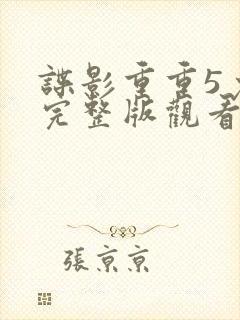 諜影重重5
完整版觀看
張京京